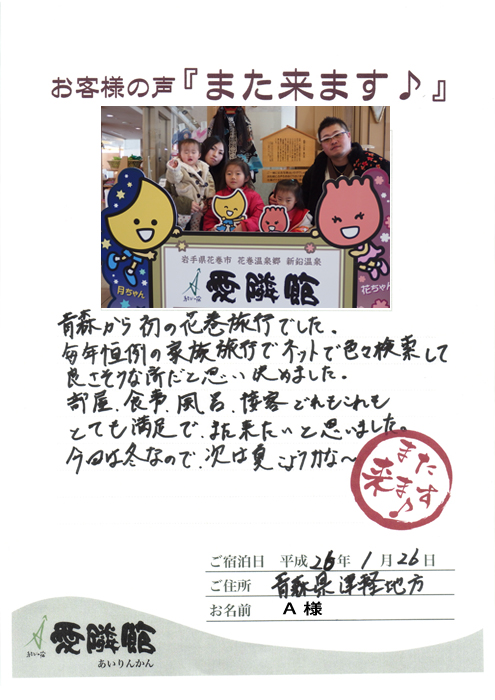 お客様の声『また来ます♪』
岩手県花巻市 花巻温泉郷 新鉛温泉
愛隣館
月ちゃん
花ちゃん
青森から初の花巻旅行でした。
毎年恒例の家族旅行でネットで色々検索して
良さそうな所だと思い決めました。
部屋、食事、風呂、接客どれもこれも
とても満足で、また来たいと思いました。
今回は冬なので、次は夏こようかな～
また来ます♪
ご宿泊日 平成26年1月26日
ご住所 青森県津軽地方
お名前 A 様
愛隣館
あいりんかん